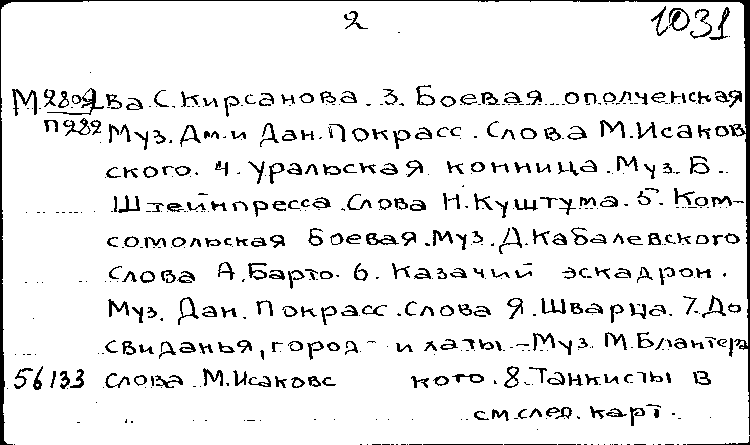 2 1031
М 2809 ва С. Кирсанова. 3. Боевая ополченская
П282 Муз. Дм. и Дан. Покрасс. Слова М. Исаков
ского. 4. Уральская конница. Муз. Б.
Штейнпресса. Слова Н. Куштума. 5. Ком-
сомольская боевая. Муз. Д. Кабалевского
Слова А. Барто. 6. Казачий эскадрон.
Муз. Дан. Покрасс. Слова Я. Шварца. 7. До
свиданья, город и хаты - Муз. М. Блантера
56133 Слова М. Исаковс кого. 8. Танкисты в
см. след. карт.